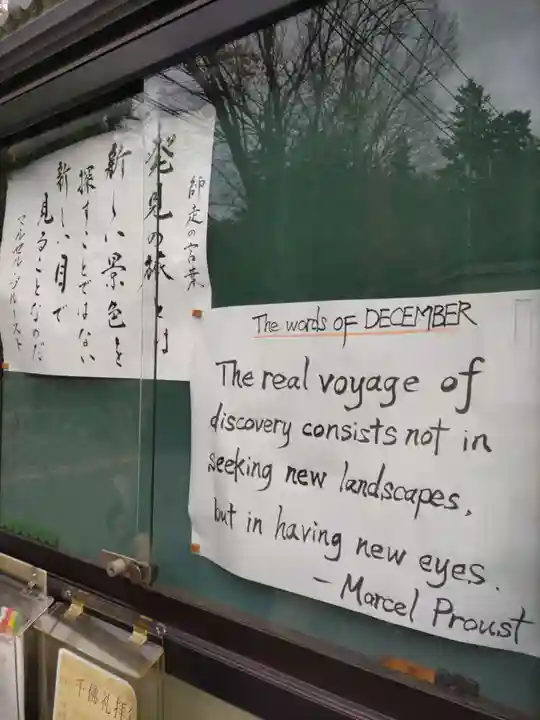 師走の言葉
発見の旅とは
新しい景色を
探すことではない
新しい目で
見ることなのだ
マルセル・プルースト
The words OF DECEMBER
The real voyage of
discovery consists not in
seeking new landscapes,
but in having new eyes.
– Marcel Proust
千佛礼拝